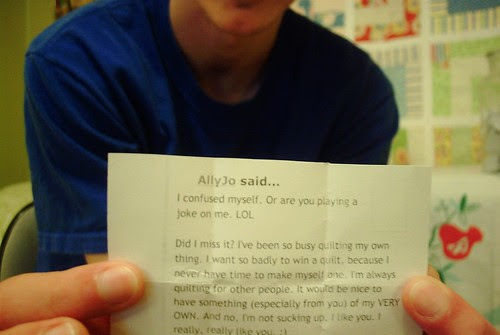 AllyJo said...
I confused myself. Or are you playing a
joke on me. LOL
Did I miss it? I've been so busy quilting my own
thing. I want so badly to win a quilt, because I
never have time to make myself one. I'm always
quilting for other people. It would be nice to
have something (especially from you) of my VERY
OWN. And no, I'm not sucking up. I like you. I
really, really like you. :)